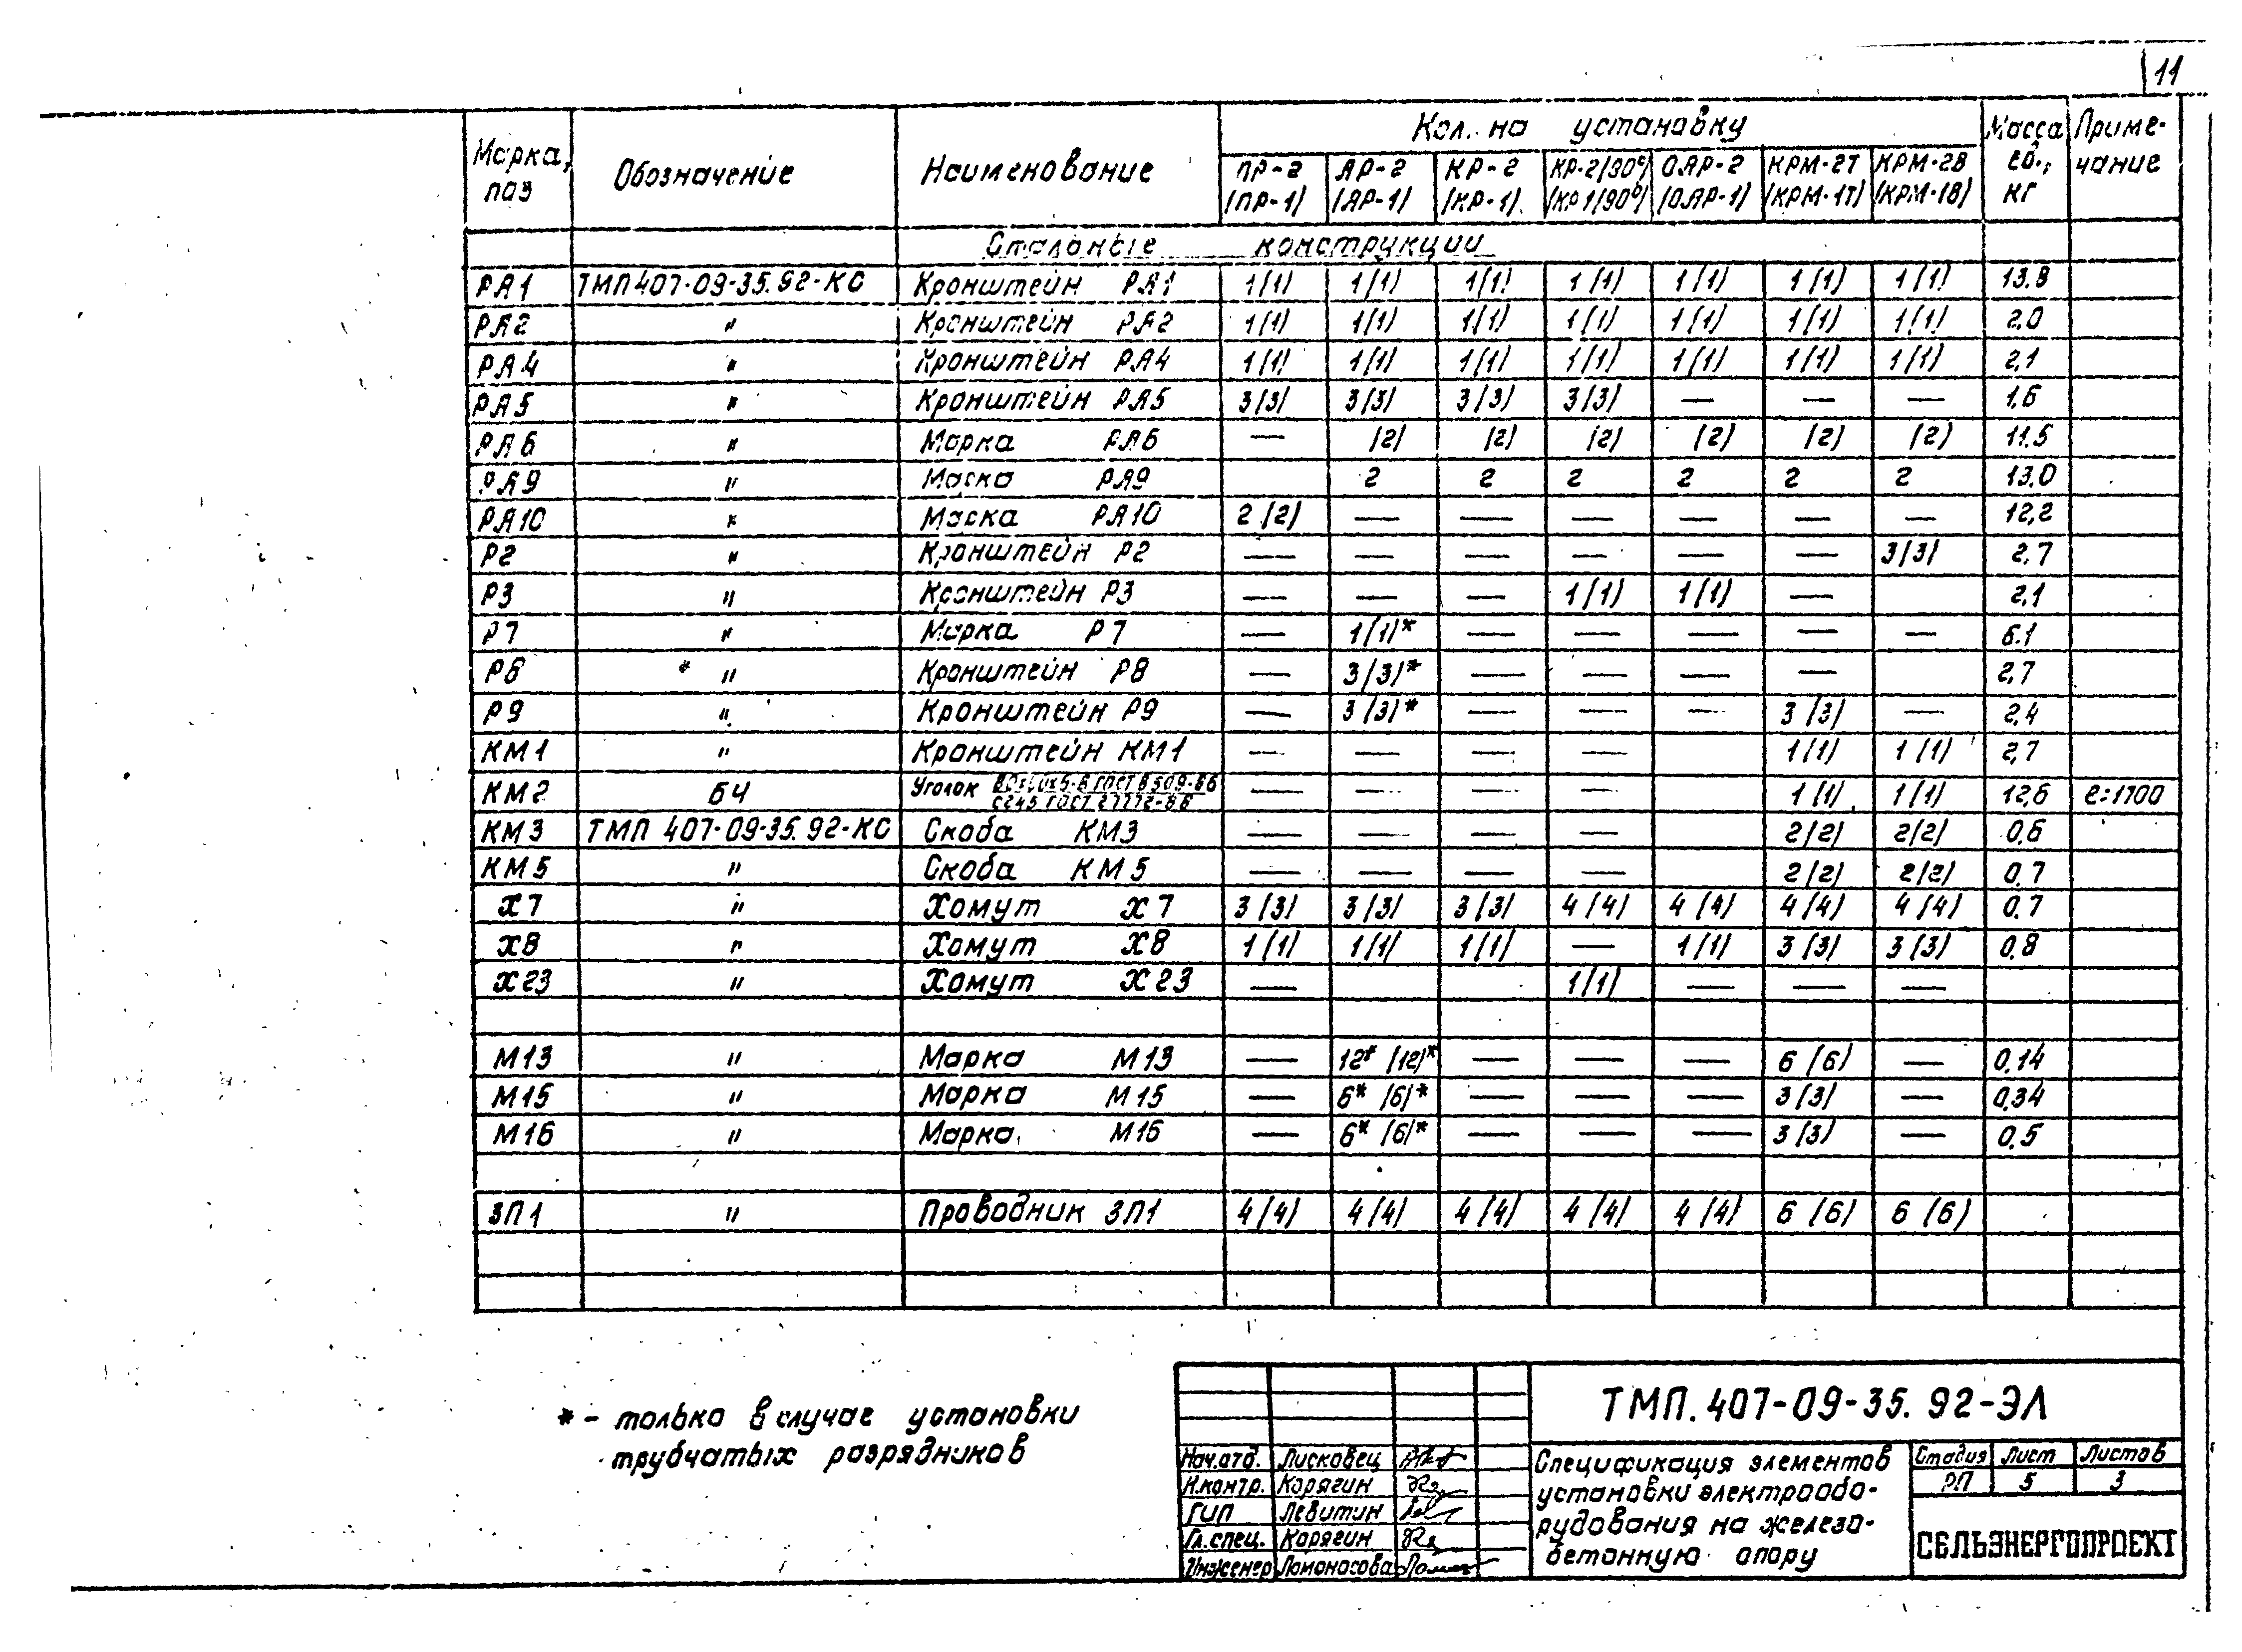 11
Марка, поз Обозначение Наименование Кол. на установку Масса ед., кг Приме-чание
ПР-2 (ПР-1) АР-2 (АР-1) КР-2 (КР-1) КР-2(90°) (КР1(90°) ОАР-2 (ОАР-1) КРМ-2Т (КРМ-1Т) КРМ-2В (КРМ-1В)
Стальные конструкции
РА1 ТМП407-09-35.92-КС Кронштейн РА1 1(1) 1(1) 1(1) 1(1) 1(1) 1(1) 1(1) 13.8
РА2 " Кронштейн РА2 1(1) 1(1) 1(1) 1(1) 1(1) 1(1) 1(1) 2.0
РА4 " Кронштейн РА4 1(1) 1(1) 1(1) 1(1) 1(1) 1(1) 1(1) 2,1
РА5 " Кронштейн РА5 3(3) 3(3) 3(3) 3(3) — — — 1,6
РА6 " Марка РА6 — (2) (2) (2) (2) (2) (2) 11.5
РА9 " Марка РА9 2 2 2 2 2 2 13.0
РА10 " Марка РА10 2(2) — — — — — — 12,2
Р2 " Кронштейн Р2 — — — — — — 3(3) 2.7
Р3 " Кронштейн Р3 — — — 1(1) 1(1) — 2,1
Р7 " Марка Р7 — 1(1)* — — — — — 6.1
Р8 " Кронштейн Р8 — 3(3)* — — — — 2,7
Р9 " Кронштейн Р9 — 3(3)* — — — 3(3) — 2,4
КМ1 " Кронштейн КМ1 — — — — 1(1) 1(1) 2,7
КМ2 БЧ Уголок ГОСТ 8509-86 С245 ГОСТ 27772-88 — — — — 1(1) 1(1) 12,6 ℓ=1700
КМ3 ТМП 407-09-35.92-КС Скоба КМ3 — — — — 2(2) 2(2) 0,6
КМ5 " Скоба КМ5 — — — — 2(2) 2(2) 0,7
Х7 " Хомут Х7 3(3) 3(3) 3(3) 4(4) 4(4) 4(4) 4(4) 0.7
Х8 " Хомут Х8 1(1) 1(1) 1(1) — 1(1) 3(3) 3(3) 0,8
Х23 " Хомут Х23 — 1(1) — — —
М13 " Марка М13 — 12* (12)* — — — 6(6) — 0,14
М15 " Марка М15 — 6* (6)* — — — 3(3) — 0,34
М16 " Марка М16 — 6* (6)* — — — 3(3) — 0,5
ЗП1 " Проводник ЗП1 4(4) 4(4) 4(4) 4(4) 4(4) 6(6) 6(6)
* - только в случае установки
трубчатых разрядников
ТМП.407-09-35.92-ЭЛ
Нач.отд. Лисковец
Н.контр. Корягин
ГИП Левитин
Гл.спец. Корягин
Инженер Ломоносова
Спецификация элементов
установки электрообо-
рудования на железо-
бетонную опору
Стадия Лист Листов
РП 5 3
СЕЛЬЭНЕРГОПРОЕКТ